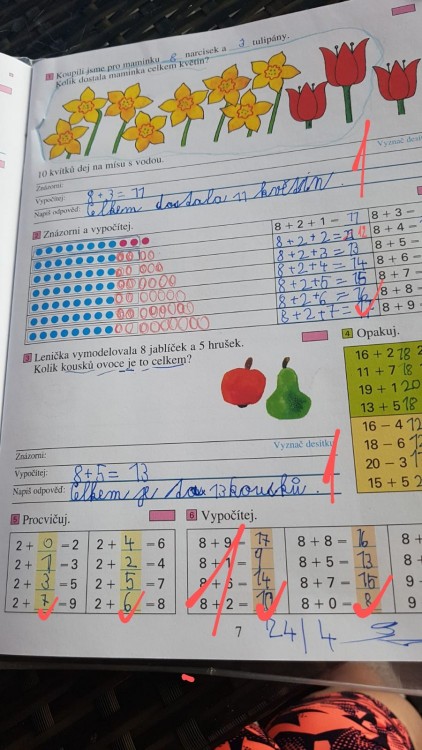 1 Koupili jsme pro maminku 8 narcisek a 3 tulipány.
Kolik dostala maminka celkem květin?
10 kvítků dej na mísu s vodou.
Vyznač desít
Znázorni:
Vypočítej: 8+3=11
Napiš odpověď: Celkem dostala 11 květin.
2 Znázorni a vypočítej.
8 + 2 + 1 = 11
8 + 2 + 2 = 12
8 + 2 + 3 = 13
8 + 2 + 4 = 14
8 + 2 + 5 = 15
8 + 2 + 6 =
8 + 2 + 7 =
8 + 3 =
8 + 4 =
8 + 5 =
8 + 6 =
8 + 7 =
8 + 8 =
8 + 9 =
3 Lenička vymodelovala 8 jablíček a 5 hrušek.
Kolik kousků ovoce je to celkem?
Vyznač desítk
Znázorni:
Vypočítej: 8+5= 13
Napiš odpověď: Celkem je 13 kousků.
4 Opakuj.
16 + 2 18
11 + 7 18
19 + 1 20
13 + 5 18
16 − 4 12
18 − 6 12
20 − 3
15 + 5
5 Procvičuj.
2 + 0 = 2 2 + 4 = 6
2 + 1 = 3 2 + 2 = 4
2 + 3 = 5 2 + 5 = 7
2 + 7 = 9 2 + 6 = 8
6 Vypočítej.
8 + 9 = 17 8 + 8 = 16 8 +
8 + 1 = 9 8 + 5 = 13 8 +
8 + 6 = 14 8 + 7 = 15 9 -
8 + 2 = 10 8 + 0 = 8 9
7
24/4